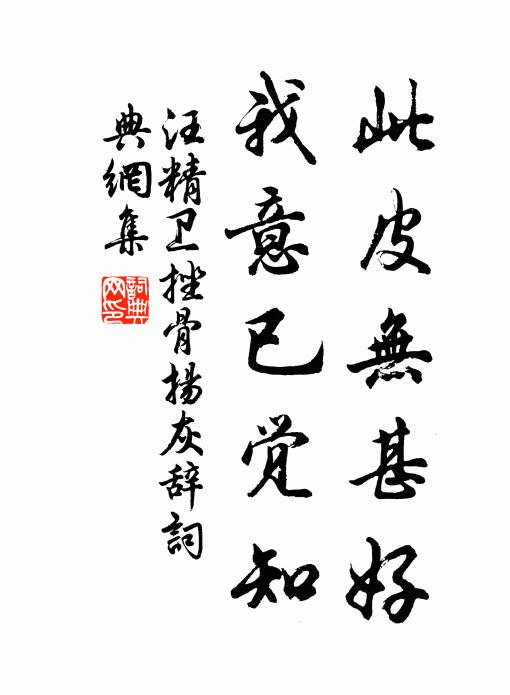 此皮無甚好
我意已觉知
汪精卫挫骨揚灰辞詞
典網集
詞典
网印